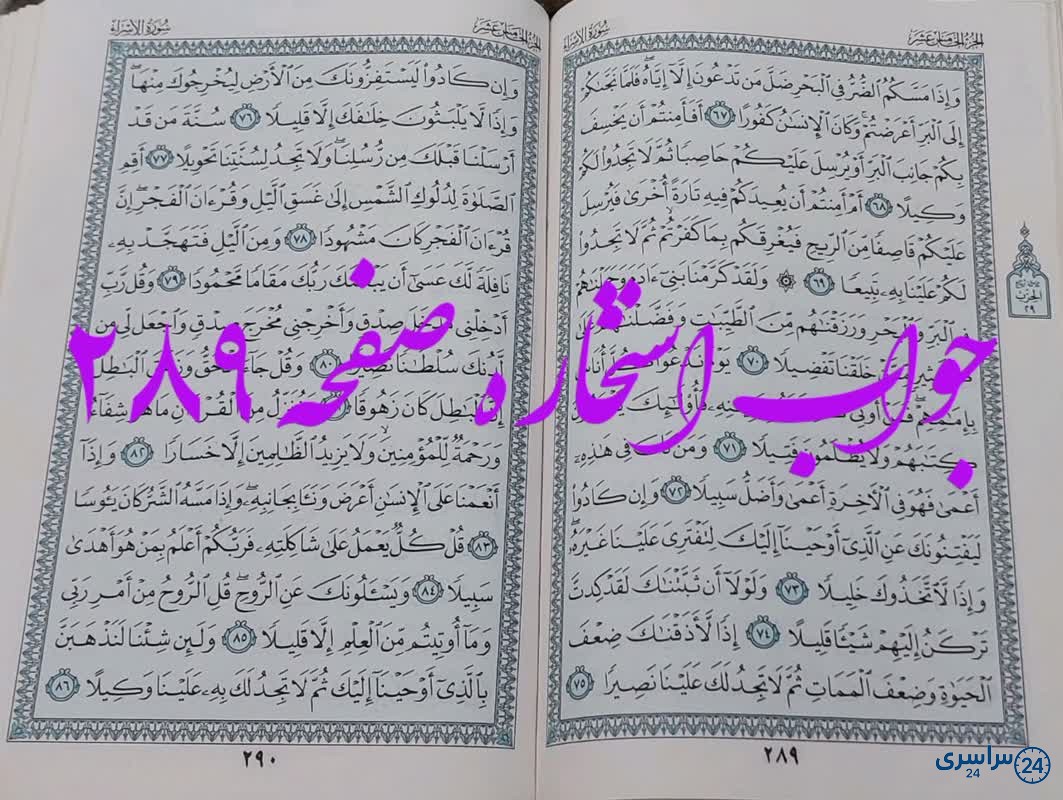 الجزء الخامس عشر
سورة الإسراء
وَإِذَا مَسَّكُمُ ٱلضُّرُّ فِى ٱلْبَحْرِ ضَلَّ مَن تَدْعُونَ إِلَّآ إِيَّاهُ ۖ فَلَمَّا نَجَّىٰكُمْ
إِلَى ٱلْبَرِّ أَعْرَضْتُمْ ۚ وَكَانَ ٱلْإِنسَٰنُ كَفُورًا ٦٧ أَفَأَمِنتُمْ أَن يَخْسِفَ
بِكُمْ جَانِبَ ٱلْبَرِّ أَوْ يُرْسِلَ عَلَيْكُمْ حَاصِبًا ثُمَّ لَا تَجِدُوا۟ لَكُمْ
وَكِيلًا ٦٨ أَمْ أَمِنتُمْ أَن يُعِيدَكُمْ فِيهِ تَارَةً أُخْرَىٰ فَيُرْسِلَ
عَلَيْكُمْ قَاصِفًا مِّنَ ٱلرِّيحِ فَيُغْرِقَكُم بِمَا كَفَرْتُمْ ۙ ثُمَّ لَا تَجِدُوا۟
لَكُمْ عَلَيْنَا بِهِۦ تَبِيعًا ٦٩ ۞ وَلَقَدْ كَرَّمْنَا بَنِىٓ ءَادَمَ وَحَمَلْنَٰهُمْ
فِى ٱلْبَرِّ وَٱلْبَحْرِ وَرَزَقْنَٰهُم مِّنَ ٱلطَّيِّبَٰتِ وَفَضَّلْنَٰهُمْ عَلَىٰ
كَثِيرٍ مِّمَّنْ خَلَقْنَا تَفْضِيلًا ٧٠ يَوْمَ نَدْعُوا۟ كُلَّ أُنَاسٍۭ
بِإِمَٰمِهِمْ ۖ فَمَنْ أُوتِىَ كِتَٰبَهُۥ بِيَمِينِهِۦ فَأُو۟لَٰٓئِكَ يَقْرَءُونَ
كِتَٰبَهُمْ وَلَا يُظْلَمُونَ فَتِيلًا ٧١ وَمَن كَانَ فِى هَٰذِهِۦٓ
أَعْمَىٰ فَهُوَ فِى ٱلْءَاخِرَةِ أَعْمَىٰ وَأَضَلُّ سَبِيلًا ٧٢ وَإِن كَادُوا۟
لَيَفْتِنُونَكَ عَنِ ٱلَّذِىٓ أَوْحَيْنَآ إِلَيْكَ لِتَفْتَرِىَ عَلَيْنَا غَيْرَهُۥ ۖ
وَإِذًا لَّٱتَّخَذُوكَ خَلِيلًا ٧٣ وَلَوْلَآ أَن ثَبَّتْنَٰكَ لَقَدْ كِدتَّ
تَرْكَنُ إِلَيْهِمْ شَيْـًٔا قَلِيلًا ٧٤ إِذًا لَّأَذَقْنَٰكَ ضِعْفَ
ٱلْحَيَوٰةِ وَضِعْفَ ٱلْمَمَاتِ ثُمَّ لَا تَجِدُ لَكَ عَلَيْنَا نَصِيرًا ٧٥
٢٨٩
الحزب
٢٩
الجزء الخامس عشر
سورة الإسراء
وَإِن كَادُوا۟ لَيَسْتَفِزُّونَكَ مِنَ ٱلْأَرْضِ لِيُخْرِجُوكَ مِنْهَا ۖ
وَإِذًا لَّا يَلْبَثُونَ خِلَٰفَكَ إِلَّا قَلِيلًا ٧٦ سُنَّةَ مَن قَدْ
أَرْسَلْنَا قَبْلَكَ مِن رُّسُلِنَا ۖ وَلَا تَجِدُ لِسُنَّتِنَا تَحْوِيلًا ٧٧ أَقِمِ
ٱلصَّلَوٰةَ لِدُلُوكِ ٱلشَّمْسِ إِلَىٰ غَسَقِ ٱلَّيْلِ وَقُرْءَانَ ٱلْفَجْرِ ۖ إِنَّ
قُرْءَانَ ٱلْفَجْرِ كَانَ مَشْهُودًا ٧٨ وَمِنَ ٱلَّيْلِ فَتَهَجَّدْ بِهِۦ
نَافِلَةً لَّكَ عَسَىٰٓ أَن يَبْعَثَكَ رَبُّكَ مَقَامًا مَّحْمُودًا ٧٩ وَقُل رَّبِّ
أَدْخِلْنِى مُدْخَلَ صِدْقٍ وَأَخْرِجْنِى مُخْرَجَ صِدْقٍ وَٱجْعَل لِّى مِن
لَّدُنكَ سُلْطَٰنًا نَّصِيرًا ٨٠ وَقُلْ جَآءَ ٱلْحَقُّ وَزَهَقَ ٱلْبَٰطِلُ ۚ
إِنَّ ٱلْبَٰطِلَ كَانَ زَهُوقًا ٨١ وَنُنَزِّلُ مِنَ ٱلْقُرْءَانِ مَا هُوَ شِفَآءٌ
وَرَحْمَةٌ لِّلْمُؤْمِنِينَ ۙ وَلَا يَزِيدُ ٱلظَّٰلِمِينَ إِلَّا خَسَارًا ٨٢ وَإِذَآ
أَنْعَمْنَا عَلَى ٱلْإِنسَٰنِ أَعْرَضَ وَنَـَٔا بِجَانِبِهِۦ ۖ وَإِذَا مَسَّهُ ٱلشَّرُّ كَانَ يَـُٔوسًا
٨٣ قُلْ كُلٌّ يَعْمَلُ عَلَىٰ شَاكِلَتِهِۦ فَرَبُّكُمْ أَعْلَمُ بِمَنْ هُوَ أَهْدَىٰ
سَبِيلًا ٨٤ وَيَسْـَٔلُونَكَ عَنِ ٱلرُّوحِ ۖ قُلِ ٱلرُّوحُ مِنْ أَمْرِ رَبِّى
وَمَآ أُوتِيتُم مِّنَ ٱلْعِلْمِ إِلَّا قَلِيلًا ٨٥ وَلَئِن شِئْنَا لَنَذْهَبَنَّ
بِٱلَّذِىٓ أَوْحَيْنَآ إِلَيْكَ ثُمَّ لَا تَجِدُ لَكَ بِهِۦ عَلَيْنَا وَكِيلًا ٨٦
٢٩٠
جواب استخاره صفحه ۲۸۹
سراسری
24
24